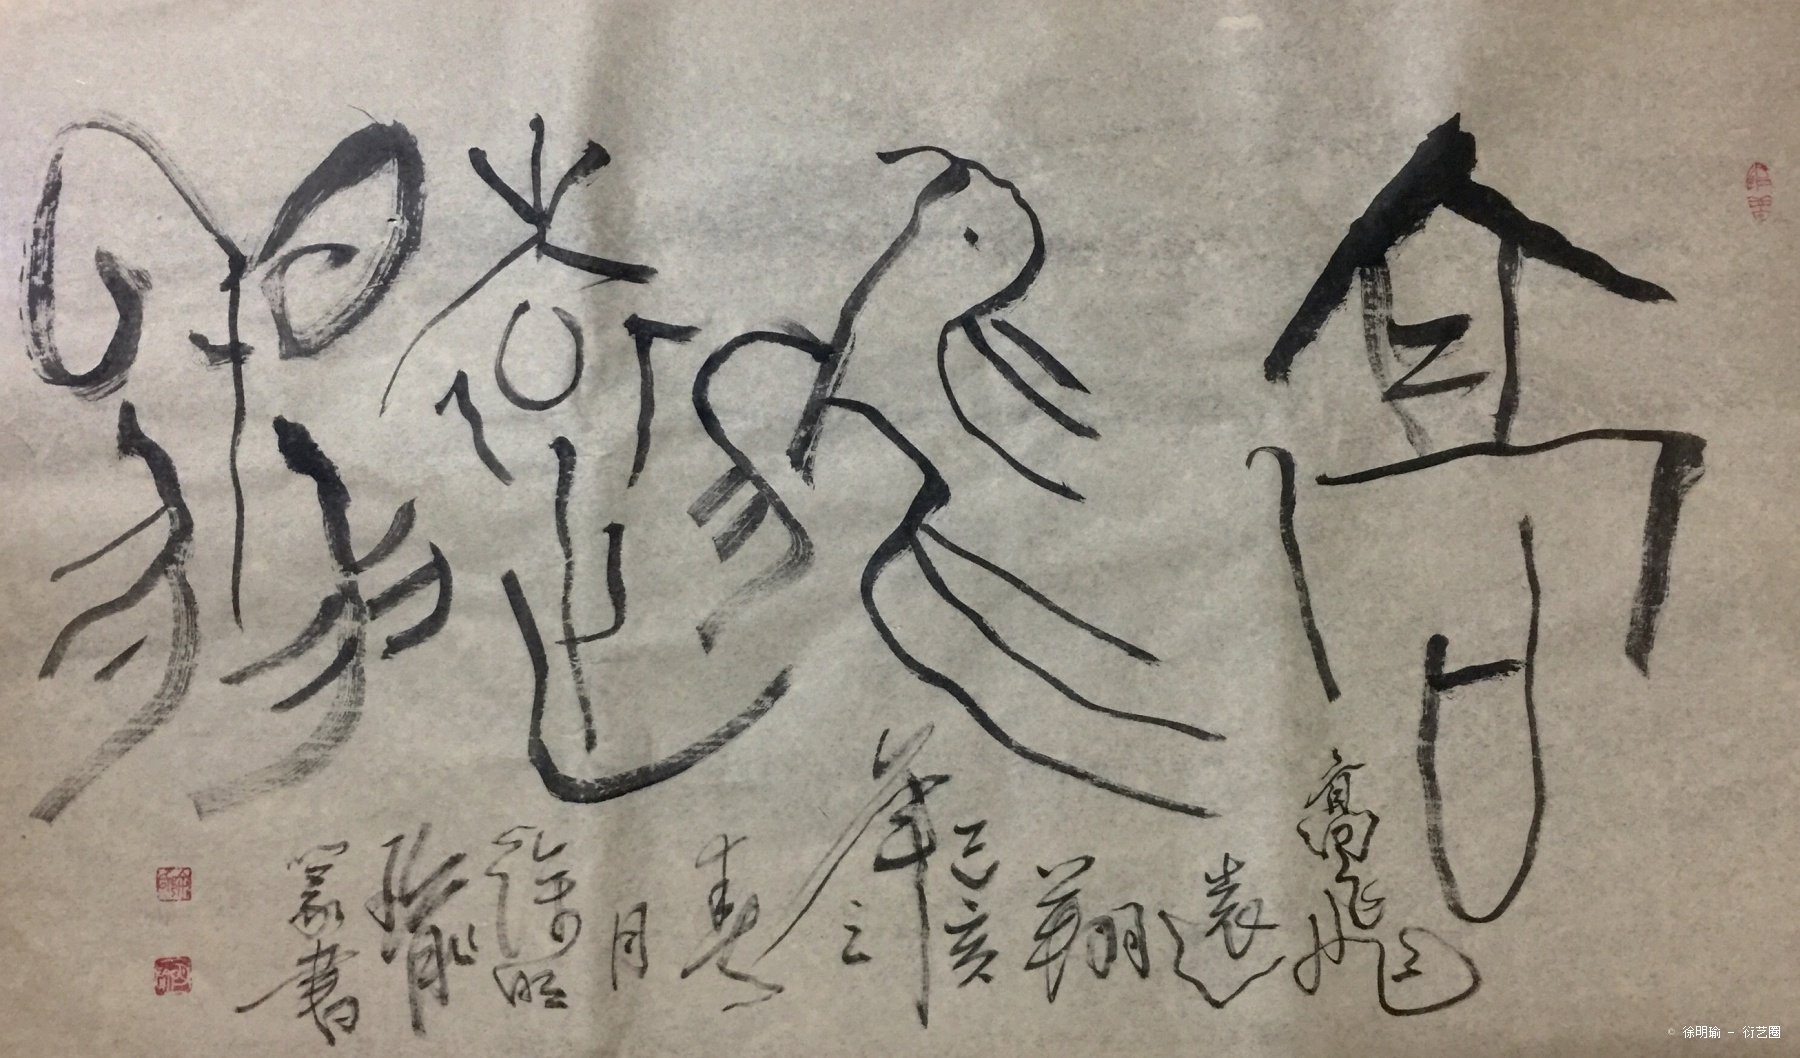 高飛遠翔
高飛遠翔 己亥年之春月 徐明瑜篆書
© 徐明瑜 - 衍艺圈